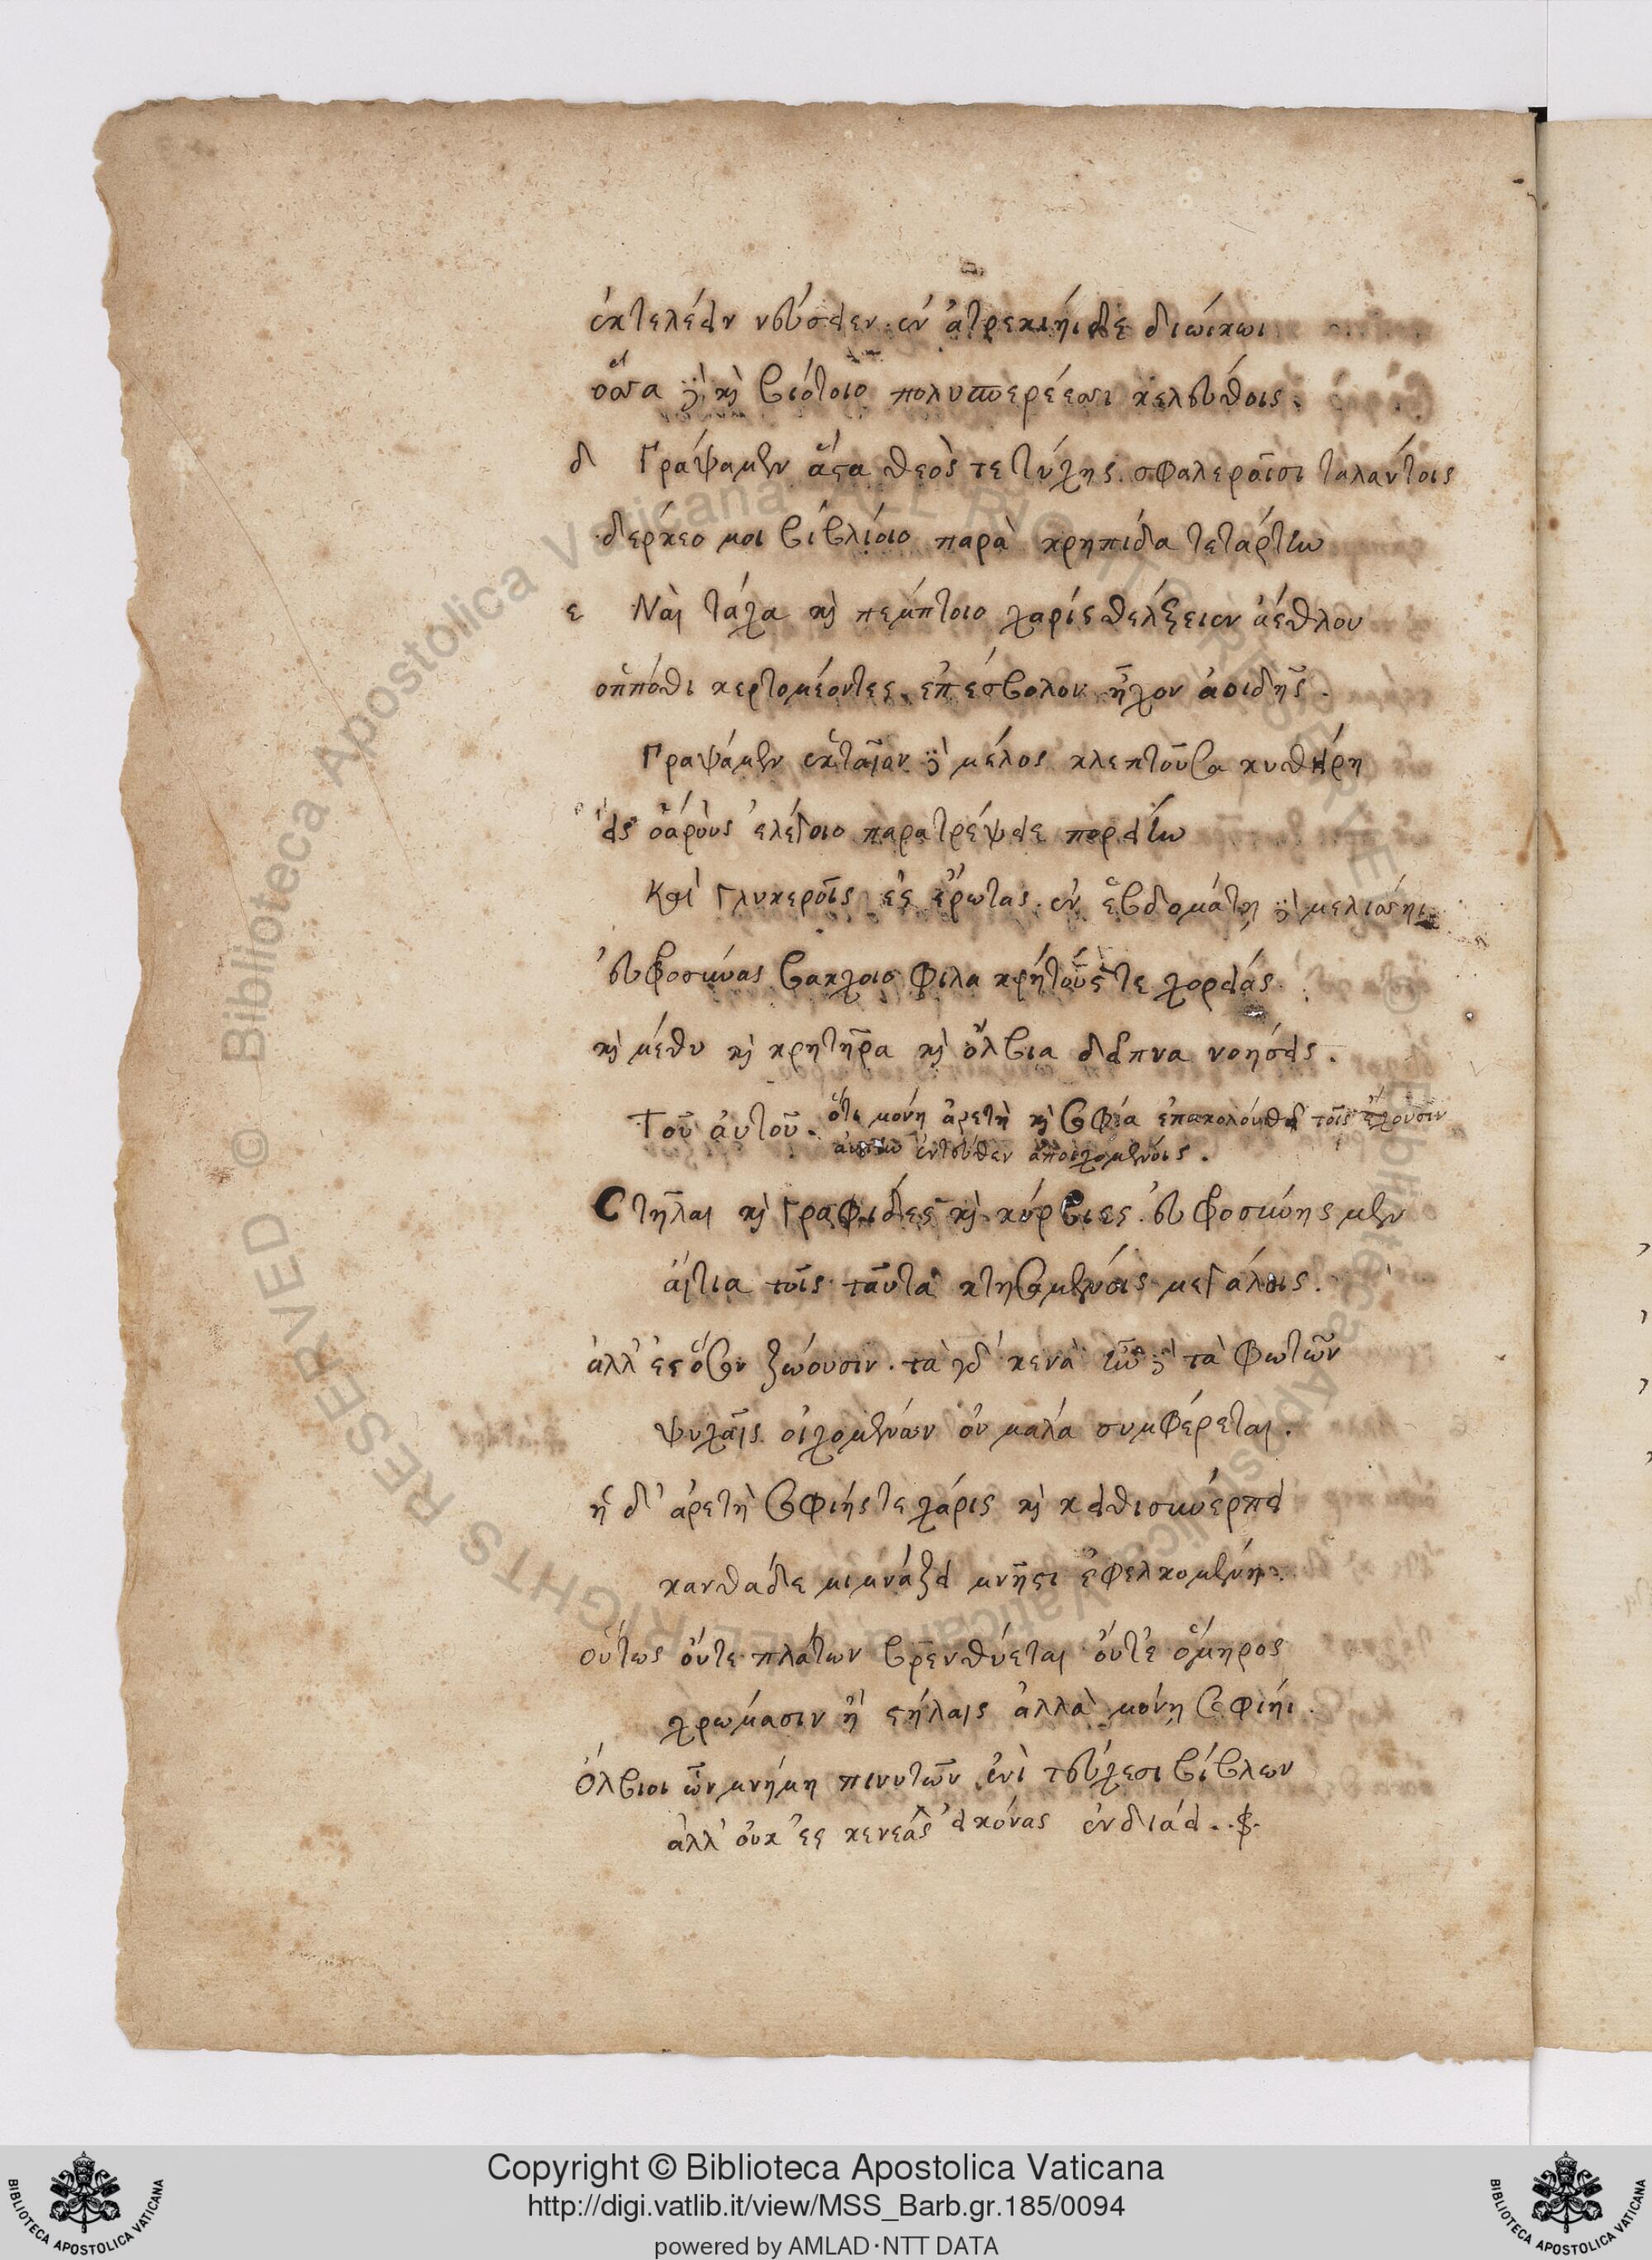 ἐκτελέειν νεύσειεν. ἐν ἀτρεκίηι δὲ διώκωι
ὅσσα καὶ βιότοιο πολυσπερέεσσι κελεύθοις.
δ Γράψαμεν ἅσσα θεὸς τε τύχης σφαλεροῖσι ταλάντοις
δέρκεο μοι βιβλίοιο παρὰ κρηπίδα τετάρτην
ε Ναὶ τάχα καὶ πέμπτοιο χάρις θέλξειεν ἀέθλου
ὁππόθι κερτομέοντες ἐπέσβολον ἦχον ἀοιδῆς.
Γραψάμεν ἑκταῖον μέλος κλεπτοῦσα κυθήρη
εἰς ὀάρους ἐλέγοιο παρατρέψειε πορείην
Καὶ γλυκεροῖς ἐς ἔρωτας. ἐν ἑβδομάτῃ μελίσσηι
εὐφροσύνας βάκχοιο φιλακρήτους τε χορείας.
καὶ μέθυ καὶ κρητῆρα καὶ ὄλβια δεῖπνα νοήσεις.
Τοῦ αὐτοῦ. ὅτι μόνη ἀρετὴ καὶ σοφία ἐπακολουθεῖ τοῖς ἔχουσιν
ἐντεῦθεν ἀποιχομένοις.
Στῆλαι καὶ γραφίδες καὶ κύρβιες. εὐφροσύνης μὲν
αἴτια τοῖς ταῦτα κτησαμένοις μεγάλης.
ἀλλ' ἐς ὅσον ζώουσιν. τὰ γὰρ κενὰ τὰ φωτῶν
ψυχαῖς οἰχομένων οὐ μάλα συμφέρεται.
ἡ δ' ἀρετὴ σοφίης τε χάρις καὶ κεῖθι συνέρπει
κἀνθάδε μιμνάζει μνῆστι ἐφελκομένη.
οὕτως οὔτε πλάτων βρενθύεται οὔτε ὅμηρος
χρώμασιν ἢ στήλαις ἀλλὰ μόνη σοφίηι.
Ὄλβιοι ὧν μνήμη πινυτῶν ἐνὶ τεύχεσι βίβλων
ἀλλ' οὐκ ἐς κενεὰς εἰκόνας ἐνδιάει.
Copyright © Biblioteca Apostolica Vaticana
http://digi.vatlib.it/view/MSS_Barb.gr.185/0094
powered by AMLAD·NTT DATA